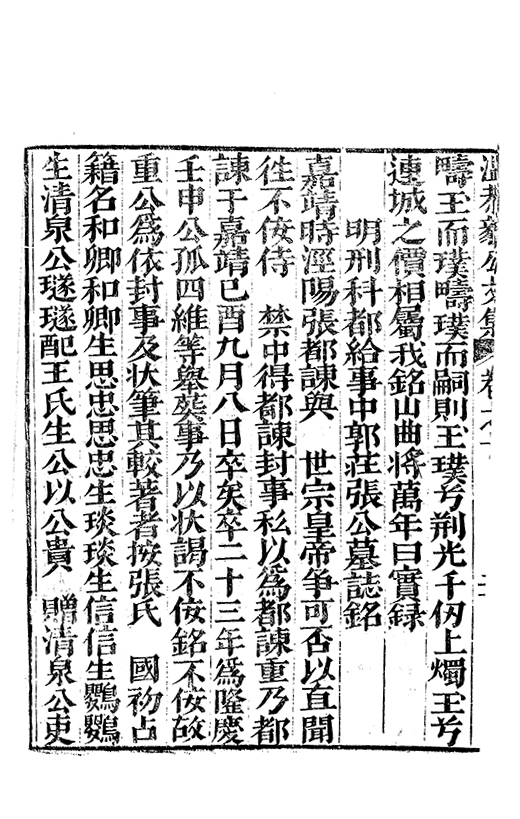 溫恭毅公文集 卷十
疇玉而璞疇璞而嗣則玉璞兮荆光千仞上燭玉兮
連城之價相屬我銘山曲将萬年曰實録
明刑科都給事中郭莊張公墓誌銘
嘉靖時涇陽張都諫與 世宗皇帝争可否以直聞
徃不佞侍 禁中得都諫封事私以為都諫重乃都
諫于嘉靖己酉九月八日卒矣卒二十三年為隆慶
壬申公孤四維等舉葬事乃以状謁不佞銘不佞故
重公為依封事及状筆其較著者按張氏 國初占
籍名和卿和卿生思忠思忠生琰琰生信信生鸚鸚
生清泉公璲璲配王氏生公以公貴 贈清泉公吏